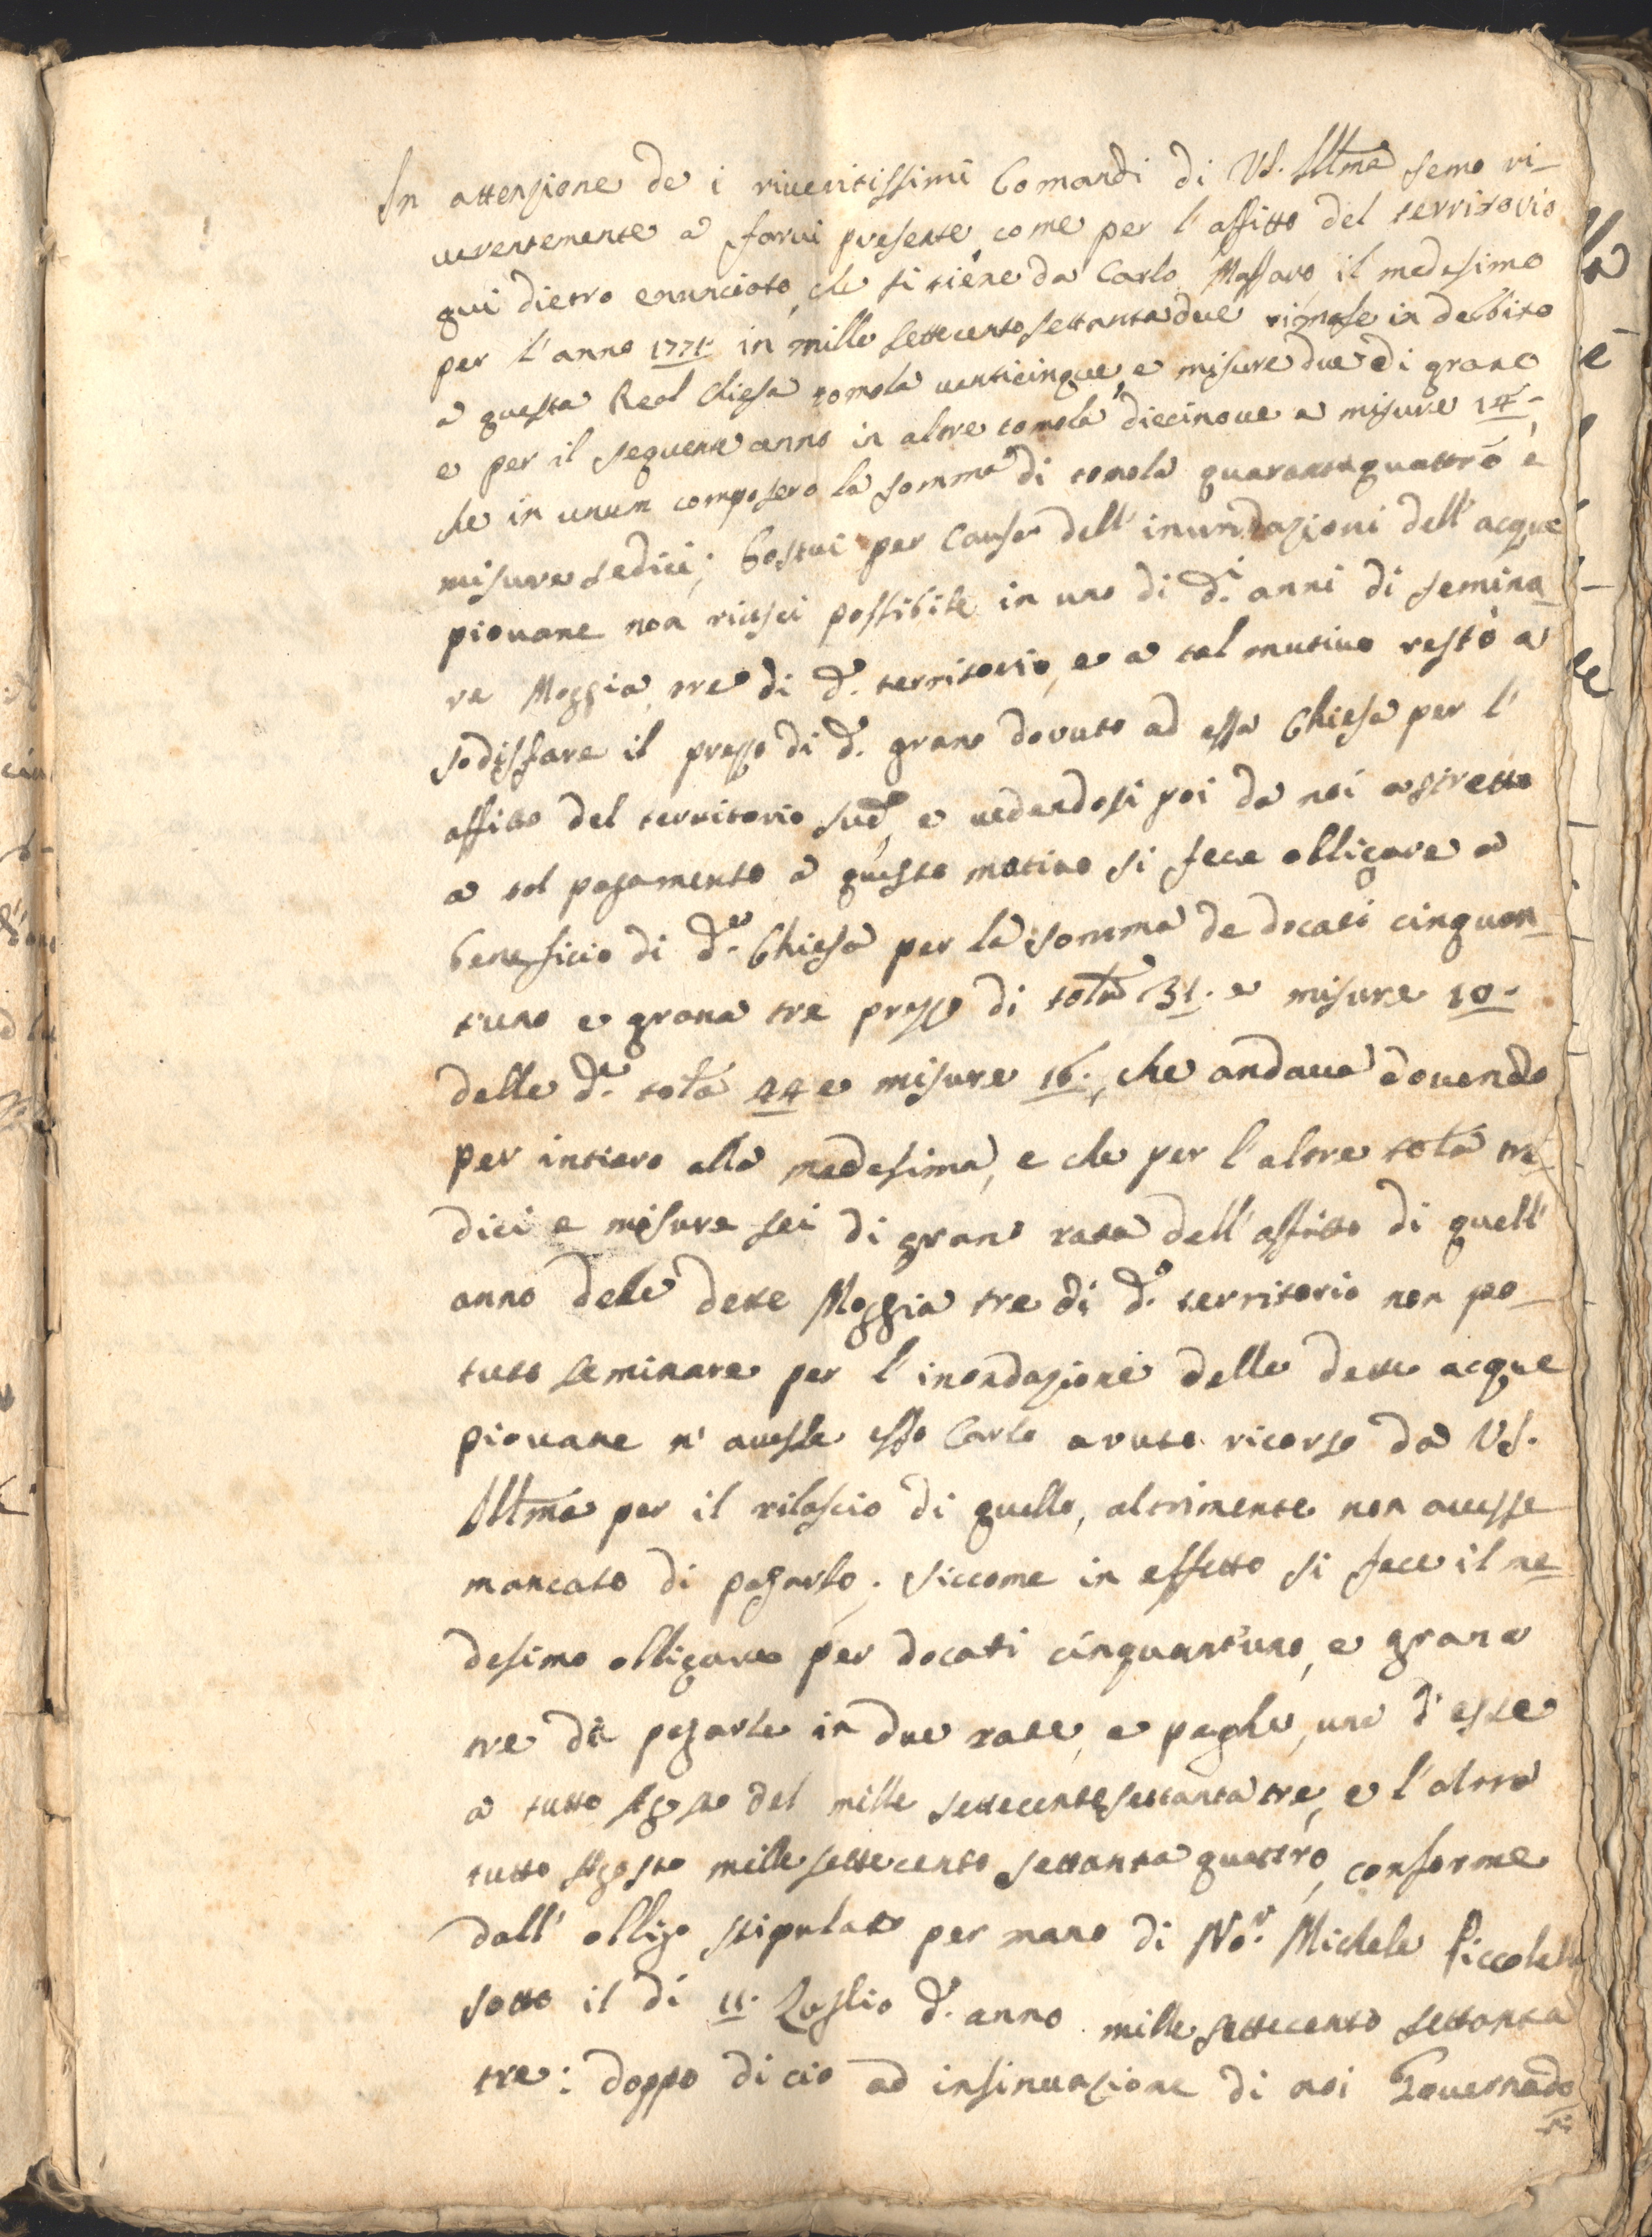 In attenzione de i riveritissimi Comandi di VS. Illma semo ri-
verentemente a farvi presente, come per l'affitto del territorio
qui dietro enunciato, che si tiene da Carlo Massaro, il medesimo
per l'anno 1771. in mille settecento settanta due rimase in debbito
a questa Real Chiesa tomola venticinque, e misure due di grano
e per il seguente anno in altre tomola diecinove a misure 14.
che in unum composero la somma di tomola quarantaquattro e
misure sedici; Costui per causa dell'inundazioni dell'acque
piovane non riuscì possibile in uno di di. anni di semina-
re Moggia tre di do. territorio, e a tal mutivo restò a
sodisfare il prezzo di do. grano dovuto ad essa Chiesa per l'
affitto del territorio sudo, e vedendosi poi da noi astretto
a tal pagamento a questo motivo si fece obligare a
beneficio di da. Chiesa per la somma de docati cinquan-
tuno e grana tre prezzo di tola 31. e misure 10.
delle de. tola 44 e misure 16., che andava dovendo
per intiero alla medesima, e che per l'altre tola tre-
dici e misure sei di grano rata dell'affitto di quell'
anno delle dette Moggia tre di do. territorio non po-
tuto seminare per l'inondazione delle dette acque
piovane n'avesse esso Carlo avuto ricorso da VS.
Illma per il rilascio di quelle, altrimente non avesse
mancato di pagarlo. Siccome in effetto si fece il me-
desimo obligare per docati cinquantuno, e grana
tre di pagarle in due rate, e paghe, una d'esse
a tutto Agosto del mille settecentosettanta tre, e l'altra
tutto Agosto mille settecento settanta quattro, conforme
dall'obligo stipulato per mano di Nor. Michele Piccolella
sotto il dì 11. Luglio do. anno mille settecento settanta
tre: doppo di ciò ad insinuazione di noi Governado-
ri